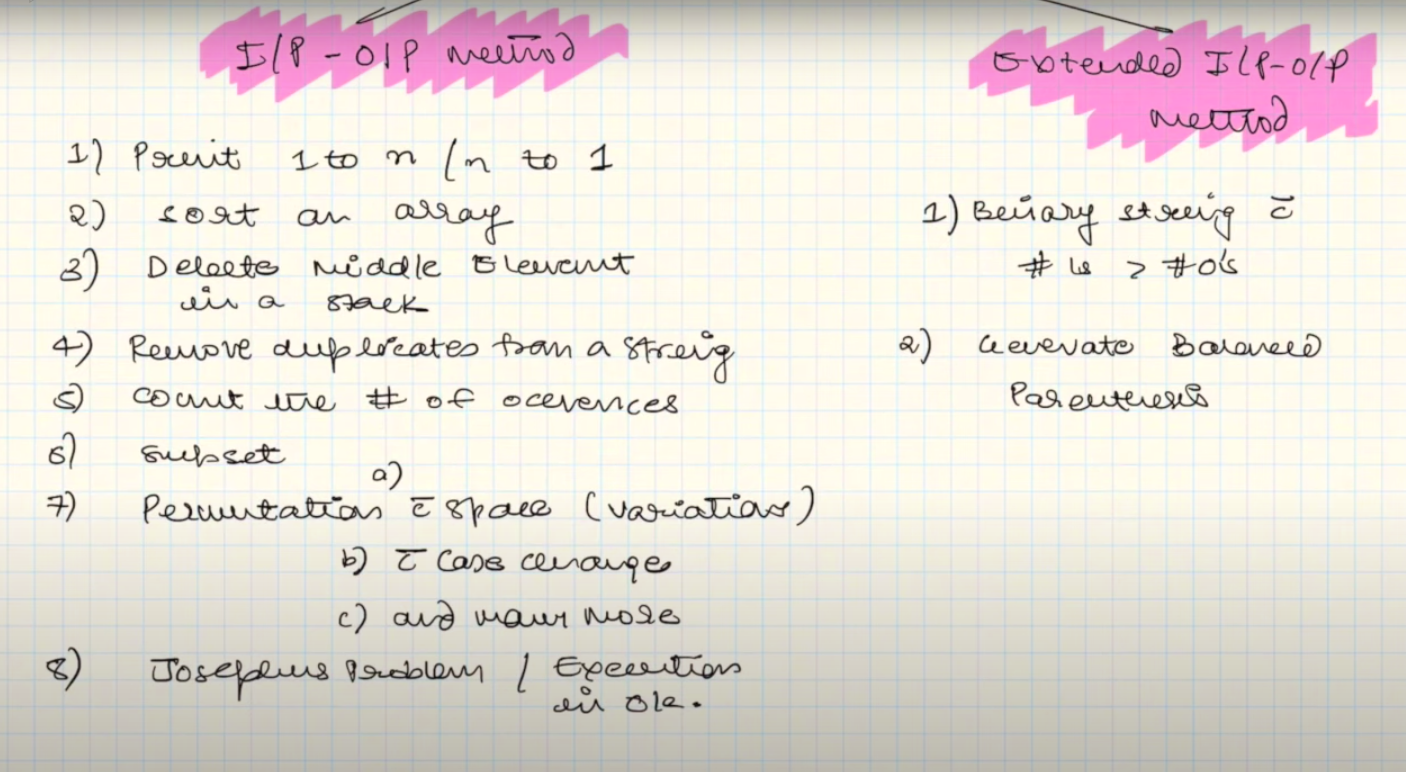 I/P - O/P Method
1) Print 1 to n / n to 1
2) sort an array
3) Delete Middle Element
in a stack
4) Remove duplicates from a string
5) count the # of occurences
6) subset
7) Permutation a) c̄ space (variation)
b) c̄ case change
c) and many more
8) Josephus Problem / Execution
in
Extended I/P-O/P
Method
1) Binary string c̄
# 1s > #0's
2) Generate Balanced
Parenthesis